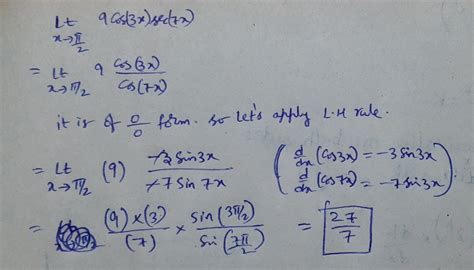 Lt x→π/2 9 Cos(3x) sec(7x)
= Lt x→π/2 9 Cos(3x)/Cos(7x)
it is of 0/0 form. so let's apply L-H rule.
= Lt x→π/2 (9) -3 Sin3x / -7 Sin 7x ( d/dx (Cos3x) = -3 Sin3x
d/dx (Cos7x) = -7 Sin7x )
= (9)×(3)/(7) × Sin(3π/2)/Sin(7π/2) = 27/7